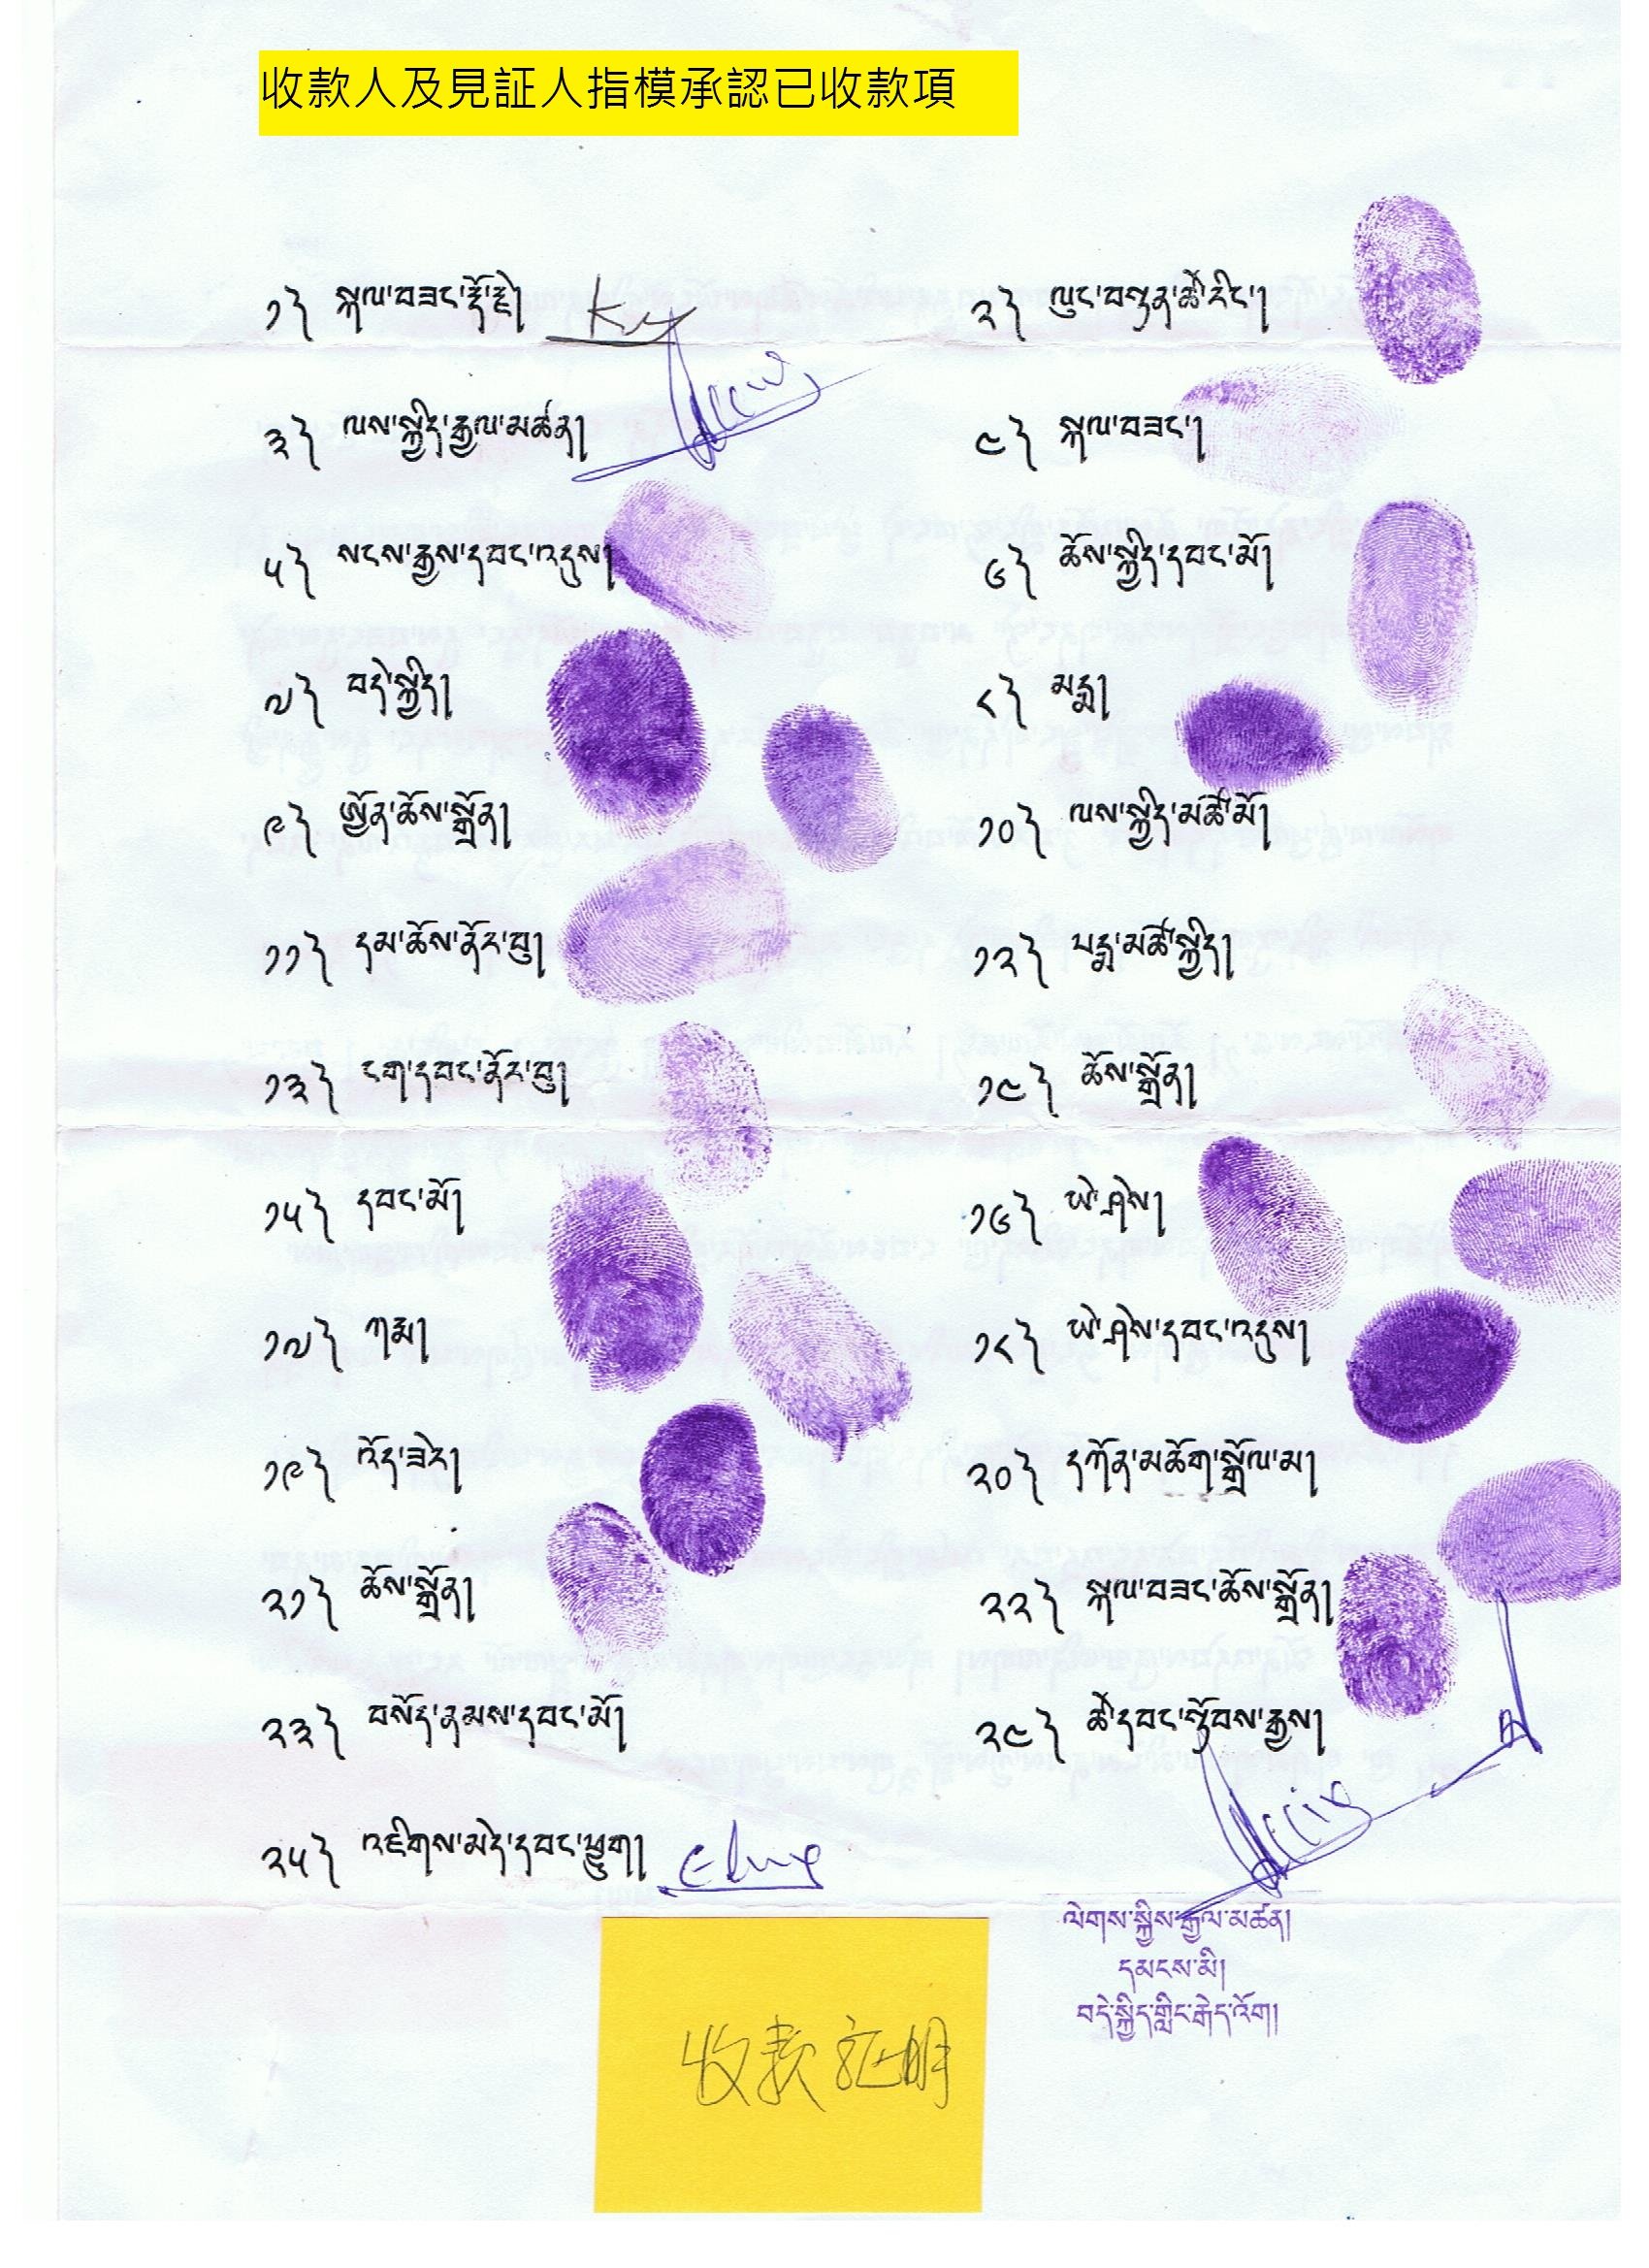 收款人及見証人指模承認已收款項
༡༽ སྐལ་བཟང་རྡོ་རྗེ།
༢༽ ལུང་བསྟན་ཚེ་རིང་།
༣༽ ལས་སྐྱིད་རྒྱལ་མཚན།
༤༽ སྐལ་བཟང་།
༥༽ སངས་རྒྱས་དབང་འདུས།
༦༽ ཆོས་སྐྱིད་དབང་མོ།
༧༽ བདེ་སྐྱིད།
༨༽ པདྨ།
༩༽ ཨྱོན་ཆོས་སྒྲོན།
༡༠༽ ལས་སྐྱིད་མཚོ་མོ།
༡༡༽ དམ་ཆོས་ནོར་བུ།
༡༢༽ པདྨ་མཚོ་སྐྱིད།
༡༣༽ ངག་དབང་ནོར་བུ།
༡༤༽ ཆོས་སྒྲོན།
༡༥༽ དབང་མོ།
༡༦༽ ཡེ་ཤེས།
༡༧༽ ཀརྨ།
༡༨༽ ཡེ་ཤེས་དབང་འདུས།
༡༩༽ འོད་ཟེར།
༢༠༽ དཀོན་མཆོག་སྒྲོལ་མ།
༢༡༽ ཆོས་སྒྲོན།
༢༢༽ སྐལ་བཟང་ཆོས་སྒྲོན།
༢༣༽ བསོད་ནམས་དབང་མོ།
༢༤༽ ཚེ་དབང་སྟོབས་རྒྱས།
༢༥༽ འཇིགས་མེད་དབང་ཕྱུག།
ལེགས་སྐྱིས་རྒྱལ་མཚན།
དམངས་མི།
བདེ་སྐྱིད་གླིང་རྒེད་འོག།
收款証明